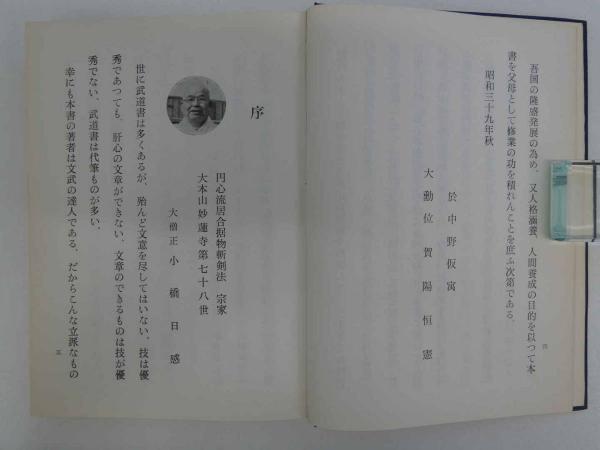 吾国の隆盛発展の為め、又人格涵養、人間養成の目的を以つて本
書を父母として修業の功を積れんことを庶ふ次第である。
昭和三十九年秋
於中野仮寓
大勲位 賀陽恒憲
四
序
円心流居合据物斬剣法 宗家
大本山妙蓮寺第七十八世
大僧正 小橋日感
世に武道書は多くあるが、殆んど文意を尽してはいない、技は優
秀であつても、肝心の文章ができない、文章のできるものは技が優
秀でない、武道書は代筆ものが多い。
幸にも本書の著者は文武の達人である、だからこんな立派なもの
三